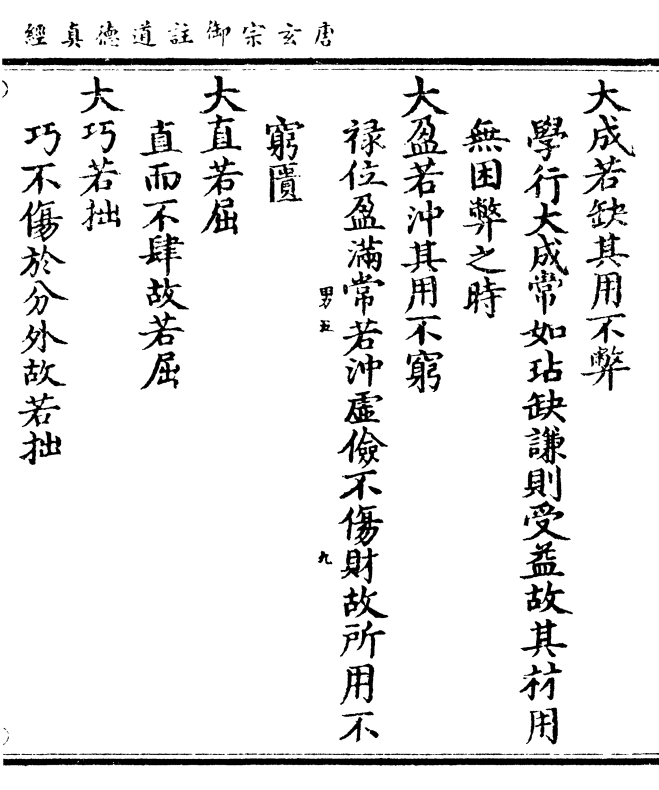 唐玄宗御註道德真經
大成若缺其用不弊
學行大成常如玷缺謙則受益故其材用
無困弊之時
大盈若沖其用不窮
祿位盈滿常若沖虛儉不傷財故所用不
男五
九
窮匱
大直若屈
直而不肆故若屈
大巧若拙
巧不傷於分外故若拙